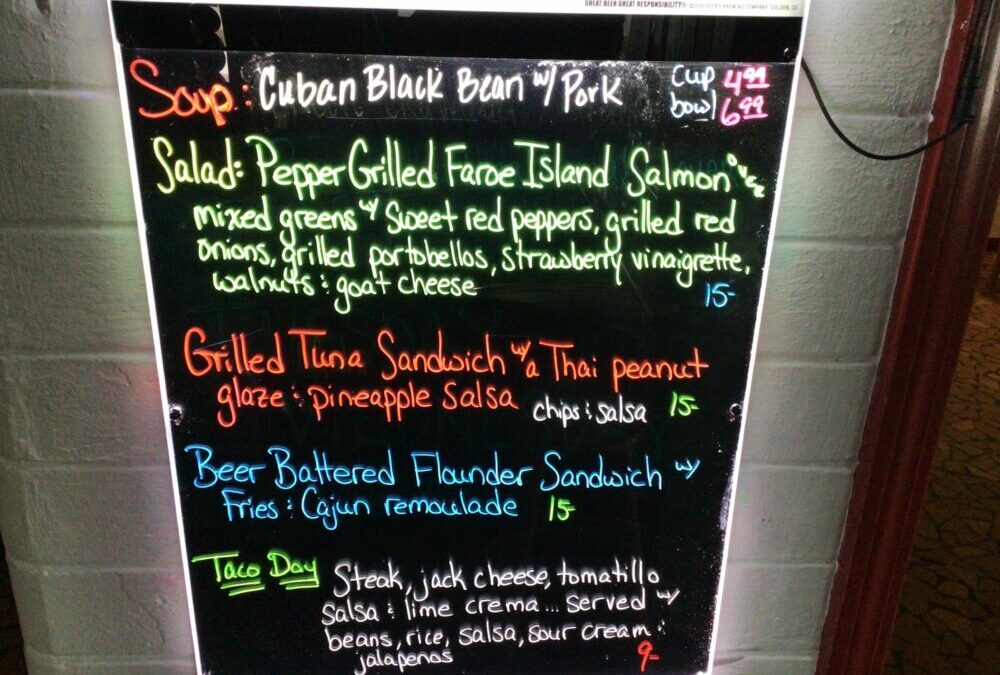 GREAT BEER GREAT RESPONSIBILITY® ©2019 COORS BREWING COMPANY, GOLDEN, CO
Soup: Cuban Black Bean w/ Pork cup 4.99
bowl 6.99
Salad: Pepper Grilled Faroe Island Salmon over
mixed greens w/ sweet red peppers, grilled red
onions, grilled portobellos, strawberry vinaigrette,
walnuts & goat cheese 15-
Grilled Tuna Sandwich w/ a Thai peanut
glaze & pineapple salsa chips & salsa 15-
Beer Battered Flounder Sandwich w/
Fries & Cajun remoulade 15-
Taco Day Steak, jack cheese, tomatillo
salsa & lime crema... served w/
beans, rice, salsa, sour cream &
jalapenos 9-